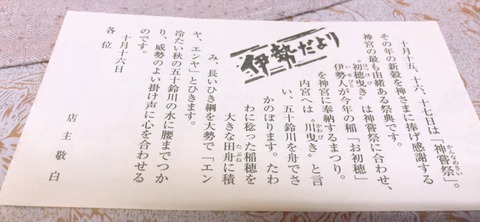 伊勢だより
十月十五、十六、十七日は「神嘗祭」。
かんなめさい
その年の新穀を神さまに捧げ感謝する
神宮の最も由緒ある祭典です。
神嘗祭に合わせ、
"初穂曳き"
はつほびき
伊勢人が今年の稲「お初穂」
を神宮に奉納するまつり。
内宮へは"川曳き"と言
かわびき
い、五十鈴川を舟でさ
かのぼります。たわ
わに稔った稲穂を
大きな田舟に積
たぶね
み、長いひき綱を大勢で「エン
ヤ、エンヤ」とひきます。
冷たい秋の五十鈴川の水に腰までつか
り、威勢のよい掛け声に心を合わせる
のです。
十月十六日
店主敬白
各位